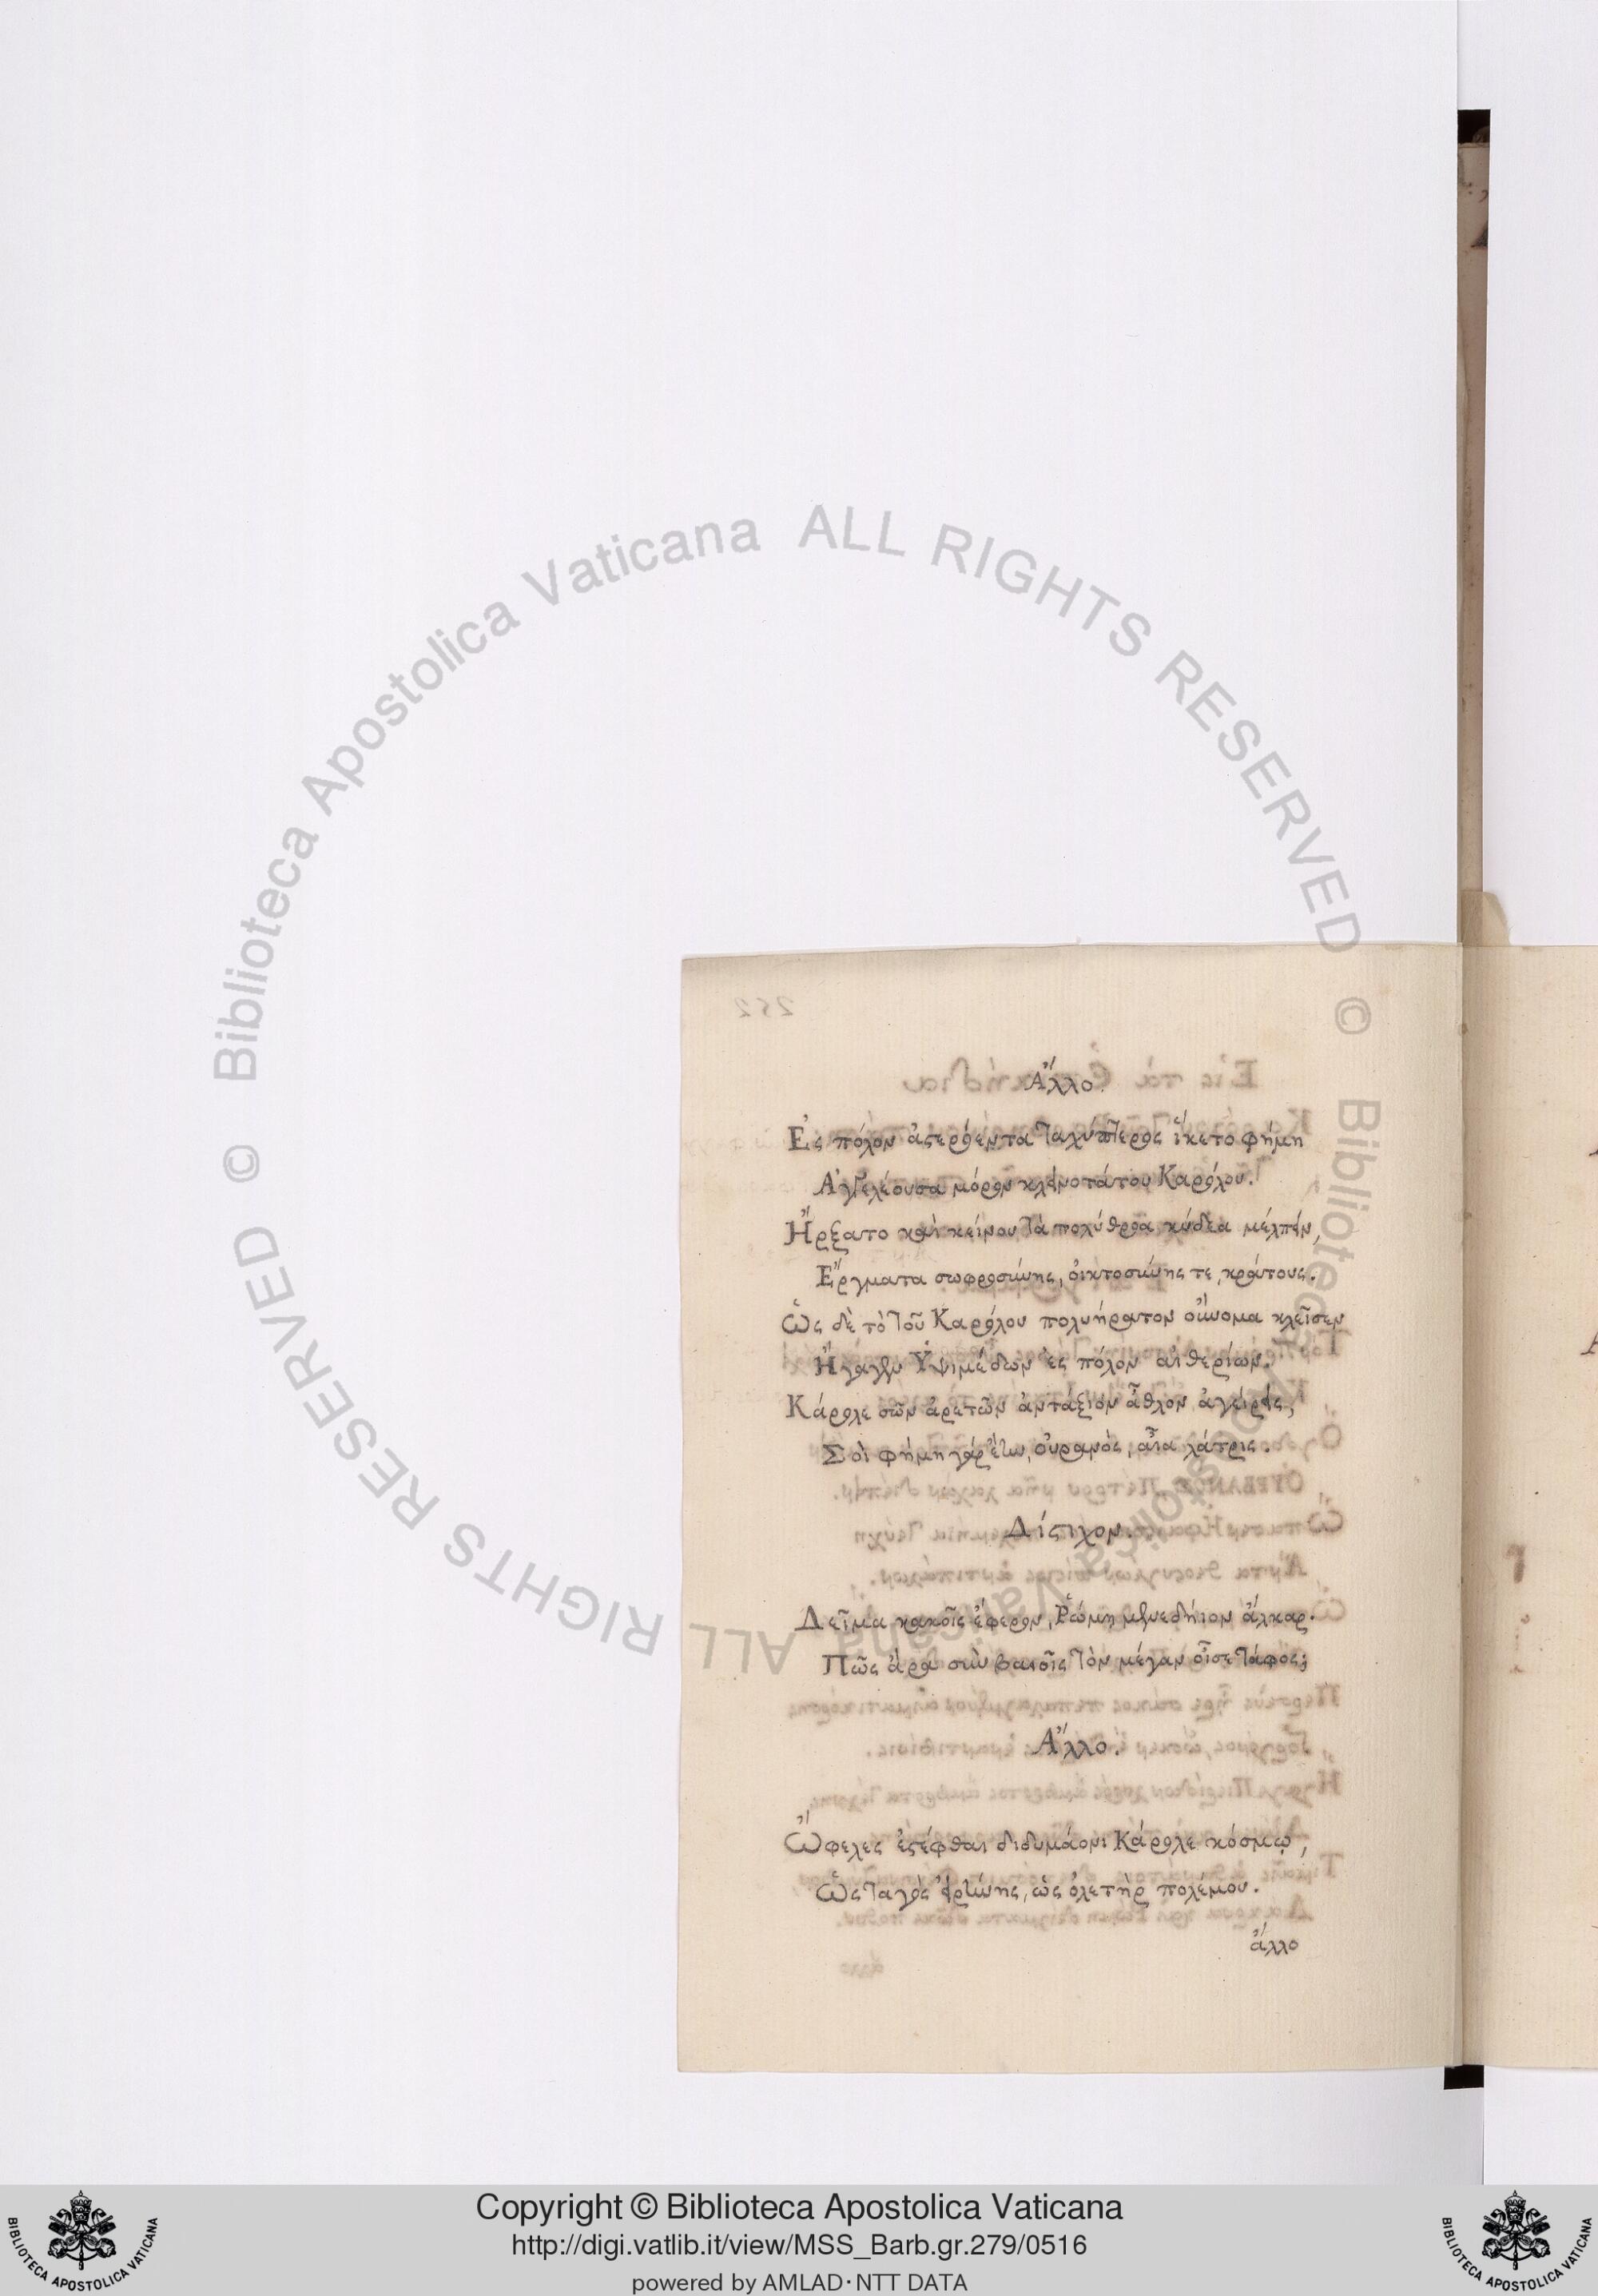 Ἄλλο.
Ἐς πόλον ἀστερόεντα ταχύπτερος ἵκετο φήμη
Ἀγγελέουσα μόρον κλεινοτάτου Καρόλου.
Ἤρξατο καὶ κείνου τὰ πολύθροα κύδεα μέλπειν,
Ἔργματα σωφροσύνης, οἰκτοσύνης τε, κράτους.
Ὡς δὲ τὸ τοῦ Καρόλου πολυήρατον οὔνομα κλεῖσεν
Ἤγαγεν Ὑψιμέδων ἐς πόλον αἰθερίων.
Κάρολε σῶν ἀρετῶν ἀντάξιον ἆθλον ἀγείρεις,
Σοὶ φήμη γὰρ ἔην, οὐρανὸς, αἶα λάτρις.
Δίστιχον.
Δεῖμα κακοῖς ἔφερον, Ῥώμῃ μενεδήϊον ἄλκαρ.
Πῶς ἄρα σὺν βαιοῖς τὸν μέγαν οἶσε τάφος;
Ἄλλο.
Ὤφελες ἐστέφθαι διδυμάονι Κάρολε κόσμῳ,
Ὡς ταγὸς εἰρήνης, ὡς ὀλετὴρ πολέμου.
ἄλλο
Copyright © Biblioteca Apostolica Vaticana
http://digi.vatlib.it/view/MSS_Barb.gr.279/0516
powered by AMLAD·NTT DATA
BIBLIOTECA APOSTOLICA VATICANA
BIBLIOTECA APOSTOLICA VATICANA
© Biblioteca Apostolica Vaticana ALL RIGHTS RESERVED
© Biblioteca Apostolica Vaticana ALL RIGHTS RESERVED